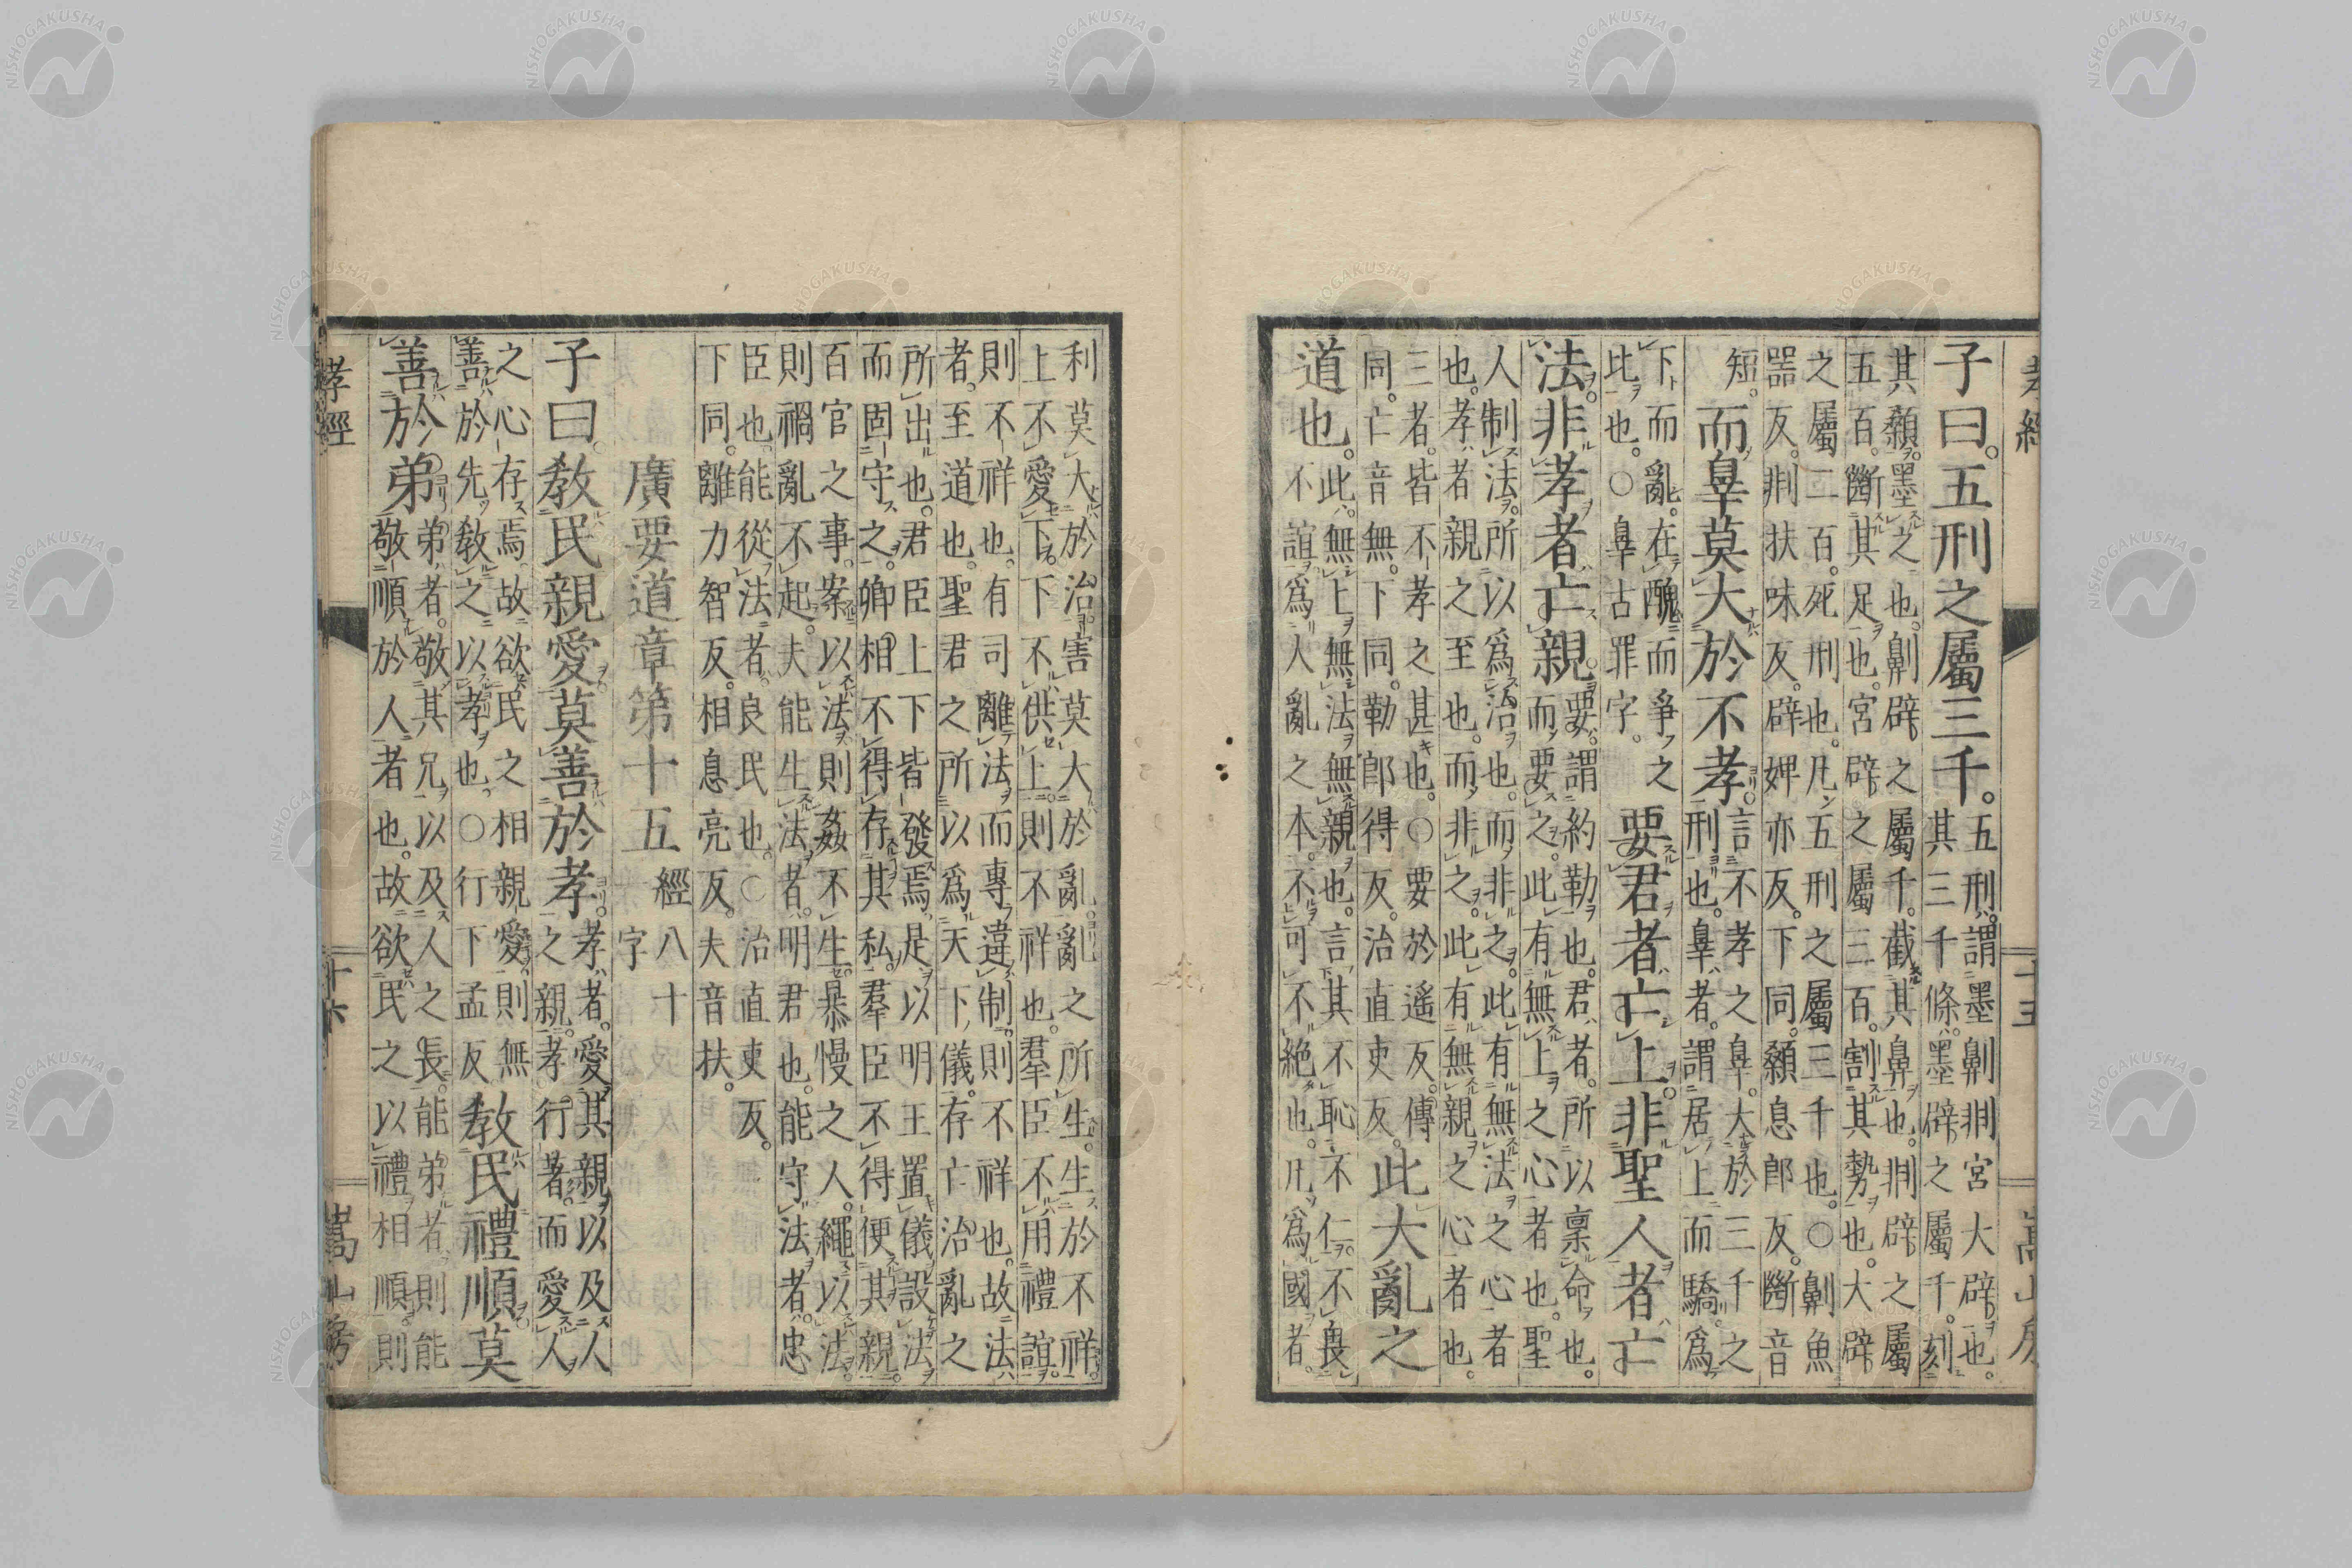 孝經
十五
嵩山房
子曰。五刑之屬三千。五刑。謂墨劓剕宮大辟也。
其三千條。墨辟之屬千。刻
其顙。墨之也。劓辟之屬千。截其鼻也。剕辟之屬
五百。斷其足也。宮辟之屬三百。割其勢也。大辟
之屬二百。死刑也。凡五刑之屬三千也。○劓魚
器反。剕扶味反。辟婢亦反。下同。顙息郎反。斷音
短。而辠莫大於不孝。言不孝之辠。大於三千之
刑也。辠者。謂居上而驕。爲
下而亂。在醜而爭之
此也。○辠古罪字。要君者亡上。非聖人者亡
法。非孝者亡親。要。謂約勒也。君者。所以稟命也。
而要之。此有無上之心者也。聖
人制法。所以爲治也。而非之。此有無法之心者
也。孝者親之至也。而非之。此有無親之心者也。
三者。皆不孝之甚也。○要於遙反。傳
同。亡音無。下同。勒郎得反。治直吏反。此大亂之
道也。此。無上無法無親也。言其不恥不仁。不畏
不誼。爲人亂之本。不可不絶也。凡爲國者。
利莫大於治。害莫大於亂。亂之所生。生於不祥。
上不愛下。下不供上。則不祥也。羣臣不用禮誼。
則不祥也。有司離法而專違制。則不祥也。故法
者。至道也。聖君之所以爲天下儀。存亡治亂之
所出也。君臣上下皆發焉。是以明王置儀設法
而固守之。卿相不得存其私。羣臣不得便其親。
百官之事。案以法。則姦不生。暴慢之人。繩以法。
則禍亂不起。夫能生法者。明君也。能守法者。忠
臣也。能從法者。良民也。○治直吏反。
下同。離力智反。相息亮反。夫音扶。
廣要道章第十五 經八十
字
子曰。教民親愛莫善於孝。孝者。愛其親以及人
之親。孝行著而愛人
之心存焉。故欲民之相親愛。則無
善於先教之以孝也。○行下孟反。教民禮順莫
善於弟。弟者。敬其兄以及人之長。能弟者則能
敬順於人者也。故欲民之以禮相順。則
孝經
十六
嵩山房